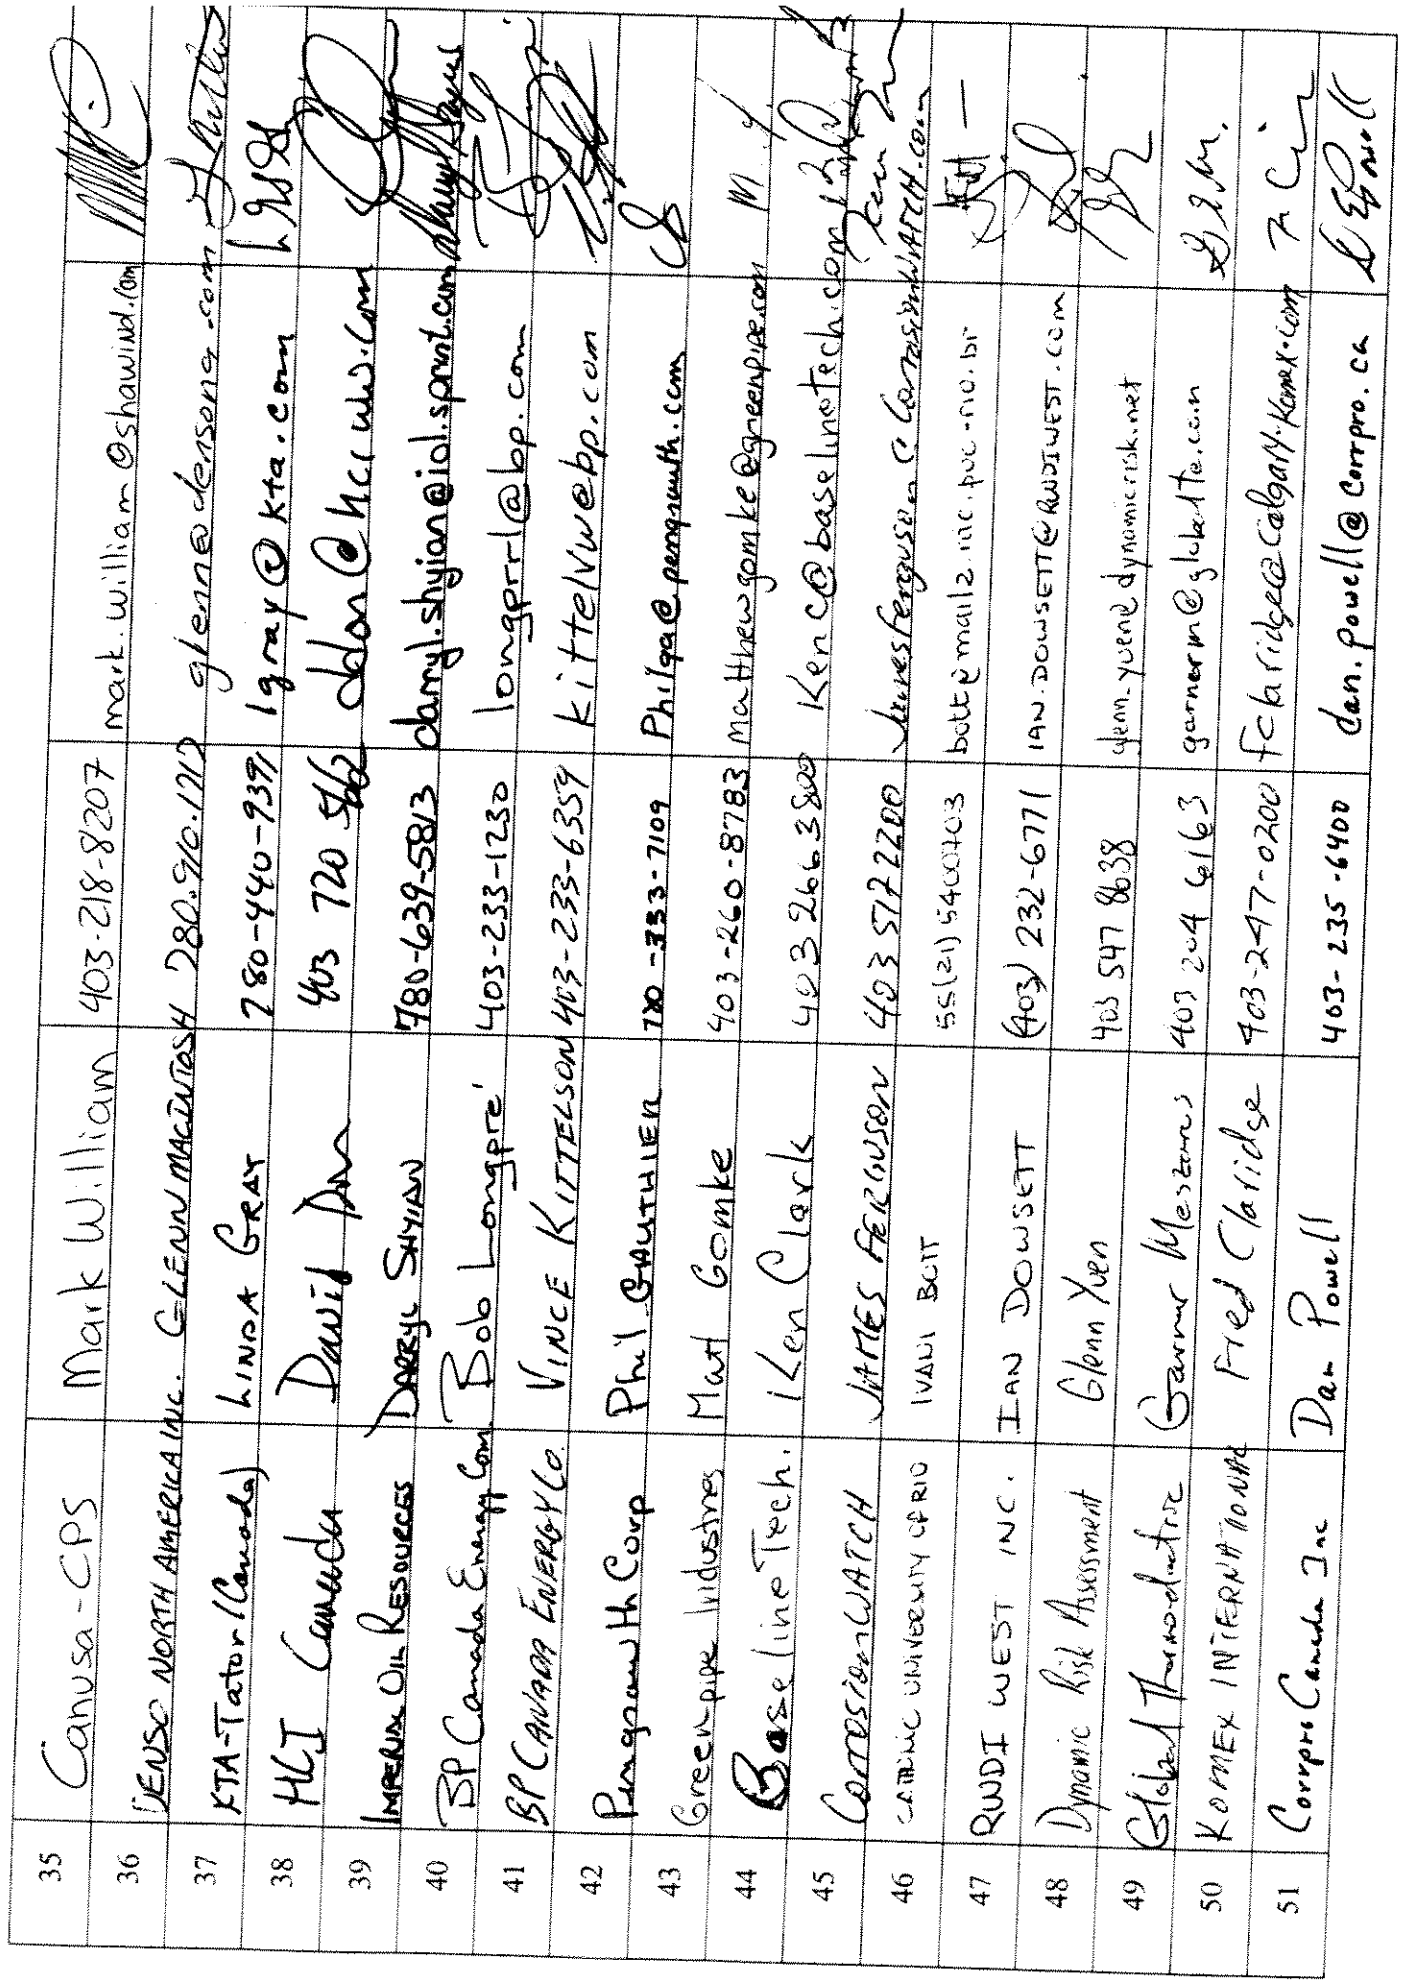 35 Canusa-CPS Mark William 403-218-8207 mark.william@shawind.com
36 DENSO NORTH AMERICA INC. GLENN MACINTOSH 780.910.1717 glenn@densona.com
37 KTA-Tator (Canada) LINDA GRAY 780-440-9391 lgray@kta.com
38 HCI Canada David 403 720
39 IMPERIAL OIL RESOURCES DARRYL SHYIAN 780-639-5813 darryl.shyian@iol.sprint.com
40 BP Canada Energy Com. Bob Longpré 403-233-1230 longprrl@bp.com
41 BP CANADA ENERGY CO. VINCE KITTELSON 403-233-6359 kittelvw@bp.com
42 Pengrowth Corp Phil GAUTHIER 780-333-7109 Philga@pengrowth.com
43 Greenpipe Industries Matt Gomke 403-260-8783 matthewgomke@greenpipe.com
44 Baseline Tech. Ken Clark 403 266 3800 Kenc@baselinetech.com
45 CorrosionWATCH JAMES FERGUSON 403 517 2200 Jamesferguson@CorrosionWATCH.com
46 CATHOLIC UNIVERSITY OF RIO IVANI BOTT 55(21)5400703 bott@mail2.rdc.puc-rio.br
47 RWDI WEST INC. IAN DOWSETT (403) 232-6771 IAN.DOWSETT@RWDIWEST.COM
48 Dynamic Risk Assessment Glenn Yuen 403 547 8638 glenn_yuen@dynamicrisk.net
49 Global Thermoelectric Garner Meszaros 403 204 6163
50 KOMEX INTERNATIONAL Fred Claridge 403-247-0200 fclaridge@calgary.komex.com
51 Corrpro Canada Inc Dan Powell 403-235-6400 dan.powell@corrpro.ca